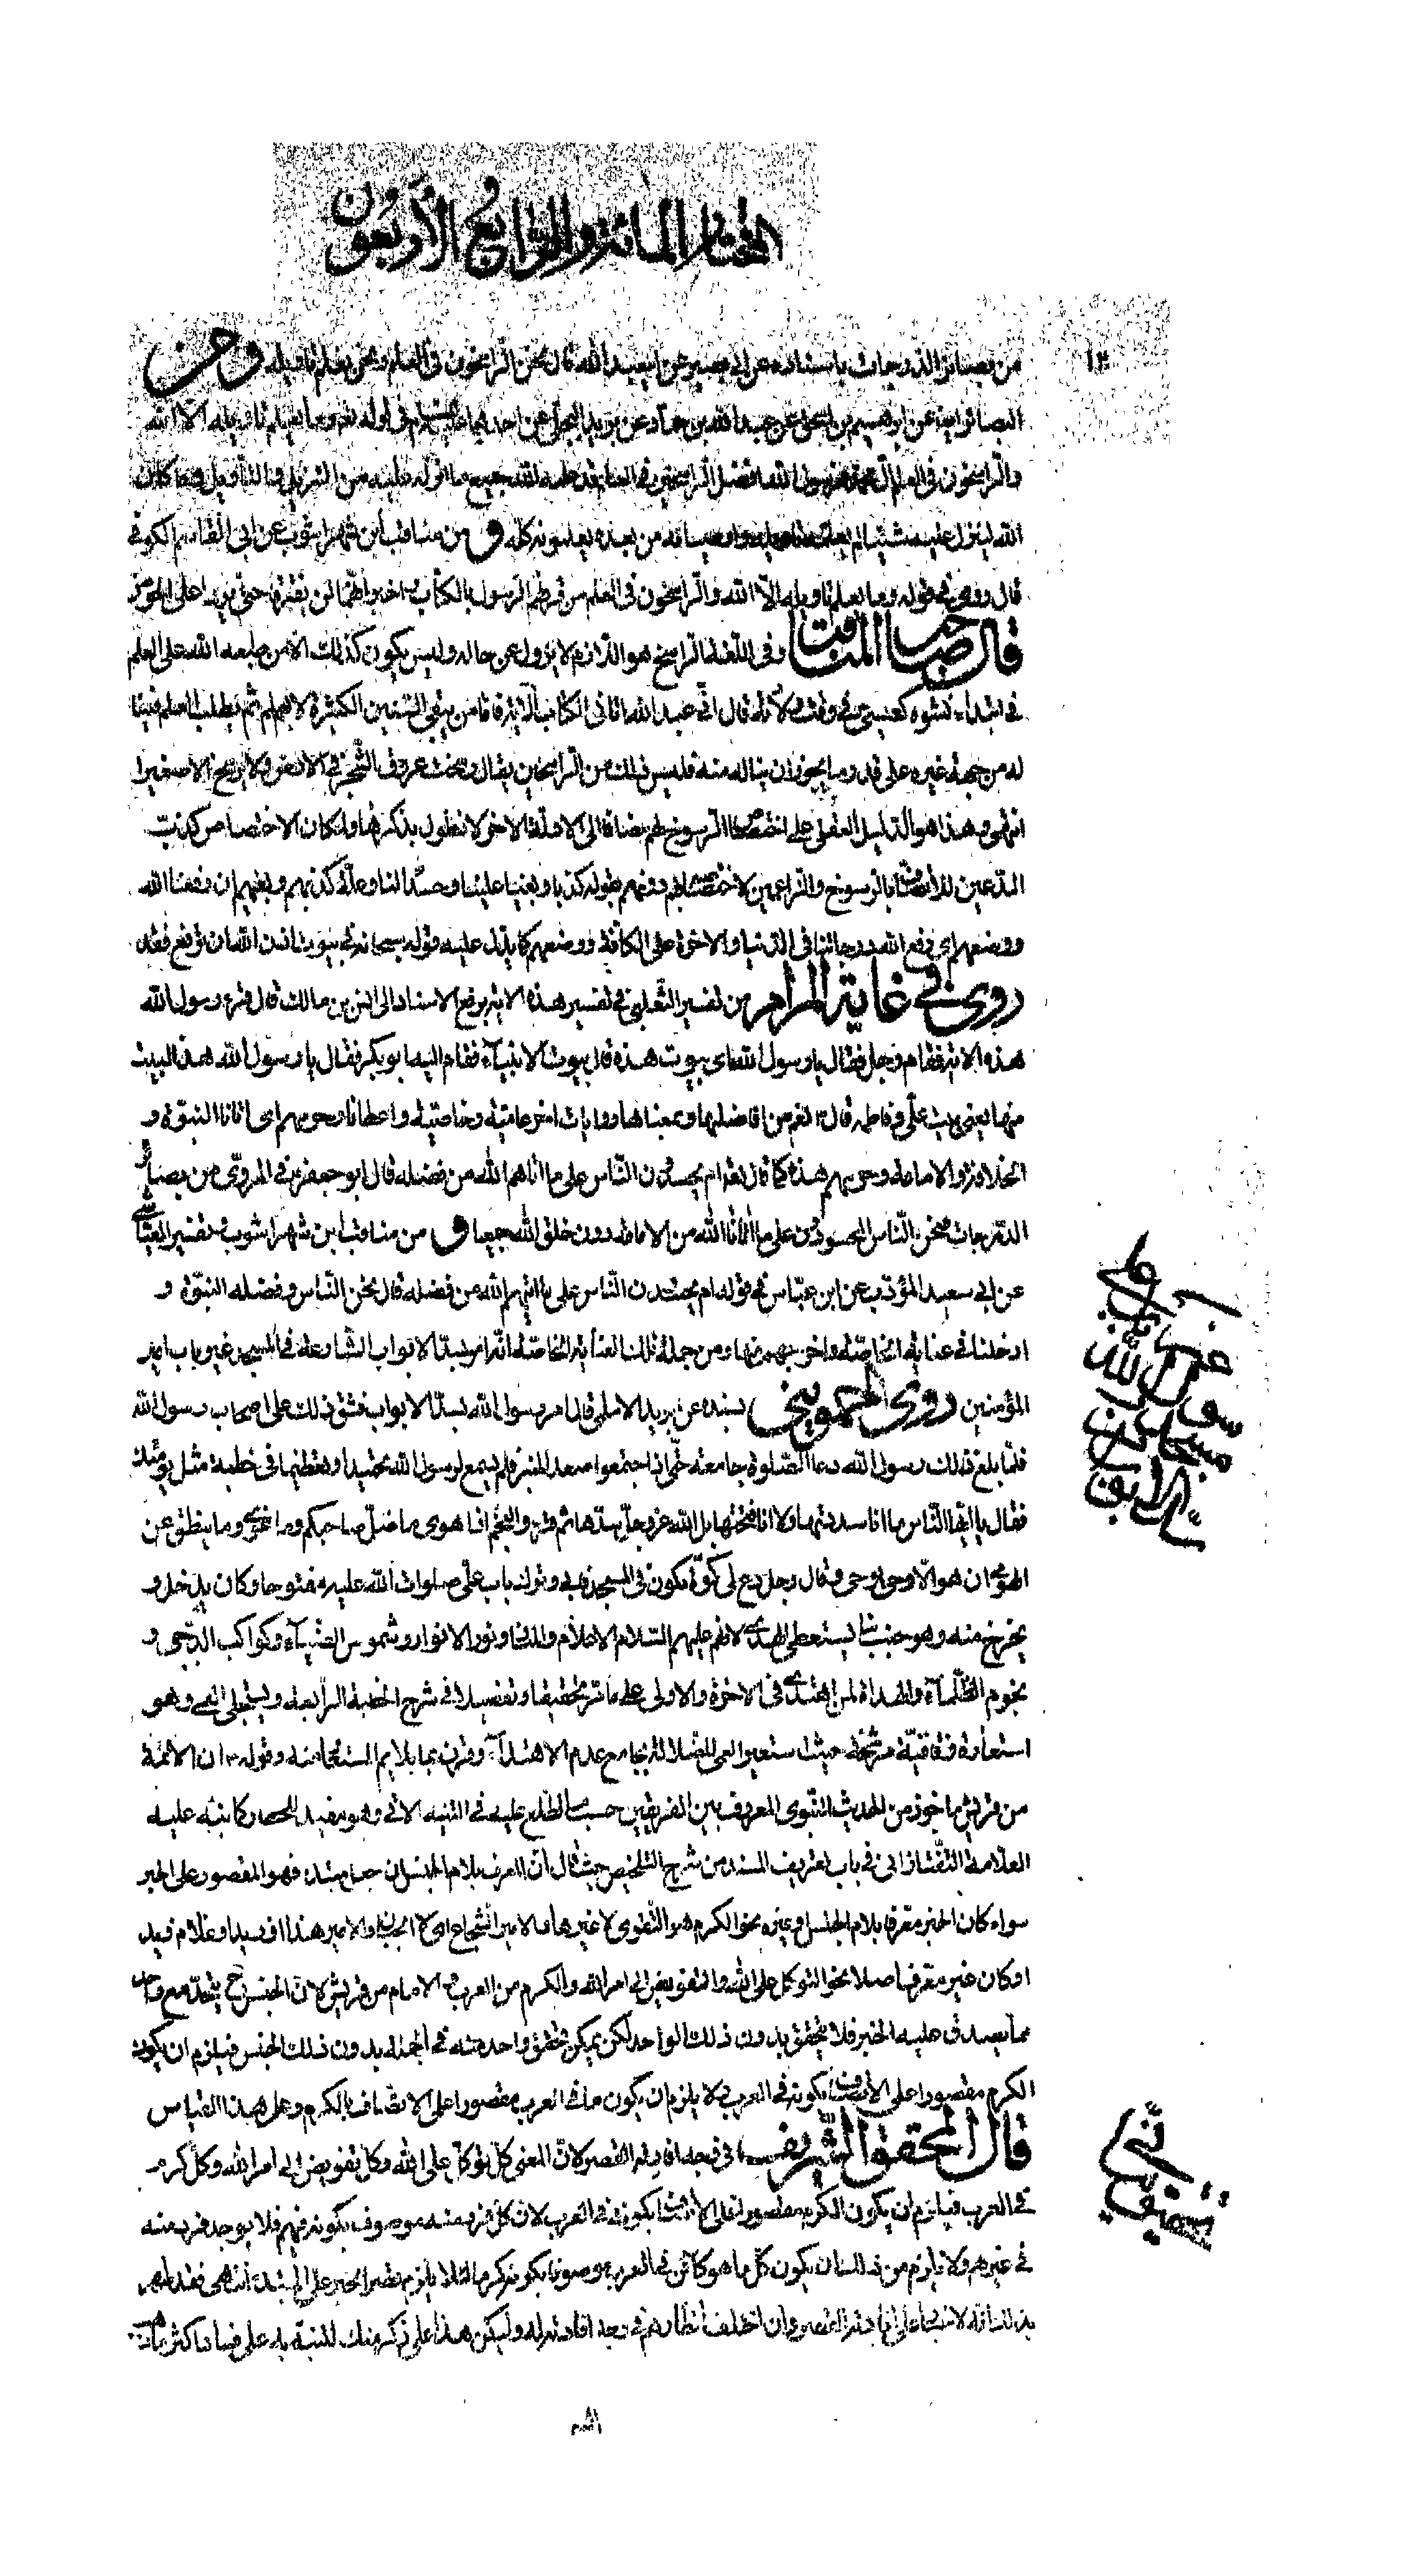 المختار المائة والرابع الأربعون
١٣
من بصائر الدرجات باسناده عن ابي بصير عن ابيعبد الله قال نحن الراسخون في العلم ونحن نعلم تاويله ومن
البصائر ايضا عن ابراهيم بن اسحق عن عبد الله بن حماد عن بريد العجلي عن احدهما في قوله تعالى وما يعلم تاويله الا الله
والراسخون في العلم آل محمد فرسول الله افضل الراسخين في العلم قد علمه الله جميع ما انزله عليه من التنزيل والتاويل وما كان
الله لينزل عليه شيئا لم يعلمه تاويله واوصيائه من بعده يعلمونه كله و من مناقب ابن شهراشوب عن ابي القاسم الكوفي
قال روى في قوله وما يعلم تاويله الا الله والراسخون في العلم من قرنهم الرسول بالكتاب اخبر انهما لن يفترقا حتى يردا على الحوض
قال صاحب المناقب وفي اللغة الراسخ هو اللازم لا يزول عن حاله وليس يكون كذلك الا من طبعه الله على العلم
في ابتداء نشوه كعيسى في وقت ولادته قال اني عبد الله اتاني الكتاب الآية فاما من يبقى السنين الكثيرة لا يعلم ثم يطلب العلم فينا
له من جهة غيره على قدر ما يجوز ان يناله منه فليس ذلك من الراسخين يقال رسخت عروق الشجر في الارض ولا يرسخ الا صغيرا
انتهى وهذا هو الدليل العقلي على اختصاص الرسوخ لهم مضافا الى الادلة الاخر لا نطول بذكرها ولمكان الاختصاص كذب
المدعين للاتصاف بالرسوخ والزاعمين لاختصاصه بهم دونهم بقوله كذبا وبغيا علينا وحسدا لنا وعلة كذبهم وبغيهم ان رفعنا الله
ووضعهم اي رفع الله درجاتنا في الدنيا والاخرة على الكافة ووضعهم كما يدل عليه قوله سبحانه في بيوت اذن الله ان ترفع فقد
روى في غاية المرام من تفسير الثعلبي في تفسير هذه الاية يرفع الاسناد الى انس بن مالك قال قرء رسول الله
هذه الاية فقام رجل فقال يا رسول الله اي بيوت هذه قال بيوت الانبياء فقام اليه ابو بكر فقال يا رسول الله هذا البيت
منها يعني بيت علي وفاطمة قال نعم من افاضلها وبمعناها روايات اخر عامية وخاصية واعطانا وحرمهم اي اتانا النبوة و
الخلافة والامامة وحرمهم هذه كما قال تعالى ام يحسدون الناس على ما اتاهم الله من فضله قال ابو جعفر في المروي من بصائر
الدرجات فنحن الناس المحسودون على ما اتانا الله من الامامة دون خلق الله جميعا و من مناقب ابن شهراشوب تفسير العياشي
عن ابي سعيد المؤدب عن ابن عباس في قوله ام يحسدون الناس على ما اتيهم الله من فضله قال نحن الناس وفضله النبوة و
ادخلنا في عنايته الخاصة واخرجهم منها ومن جملة تلك العناية الخاصة انه امر بسد الابواب الشارعة في المسجد غير باب امير
المؤمنين روى الحمويني بسنده عن بريد الاسلمي قال امر رسول الله بسد الابواب فشق ذلك على اصحاب رسول الله
فلما بلغ ذلك رسول الله دعا الصلوة جامعة حتى اذا اجتمعوا صعد المنبر فلم يسمع لرسول الله تحميدا وتعظيما في خطبة مثل يومئذ
فقال يا ايها الناس ما انا سددتها ولا انا فتحتها بل الله عز وجل سدها ثم قرء والنجم اذا هوى ما ضل صاحبكم وما غوى وما ينطق عن
الهوى ان هو الا وحي يوحى وقال رجل دع لي كوة يكون في المسجد فابى وترك باب علي صلوات الله عليه مفتوحا وكان يدخل و
يخرج منه وهو جنب بنا يستعطى الهدى لانهم عليهم السلام الاعلام والمنار ونور الانوار وشموس الضياء وكواكب الدجى و
نجوم الظلماء والهداة لمن اهتدى في الاخرة والاولى على ما مر تحقيقا وتفصيلا في شرح الخطبة الرابعة ويستجلى العمى وهو
استعارة وفاقية مرشحة حيث استعير العمى للضلالة بجامع عدم الاهتداء وقرن بما يلايم المستعار منه وقوله ان الائمة
من قريش ماخوذ من الحديث النبوي المعروف بين الفريقين حسبما تطلع عليه في التنبيه الاتي وهو مفيد للحصر كما نبه عليه
العلامة التفتازاني في باب تعريف المسند من شرح التلخيص حيث قال ان المعرف بلام الجنس ان جعل مبتدء فهو المقصور على الخبر
سواء كان الخبر معرفا بلام الجنس او غيره نحو الكرم هو التقوى لا غيرها والامير الشجاع اي لا الجبان والامير هذا او زيد او غلام زيد
او كان غير معرف اصلا نحو التوكل على الله والتفويض الى امر الله والكرم من العرب والامام من قريش لان الجنس ح يتحد مع واحد
مما يصدق عليه الخبر فلا يتحقق بدون ذلك الواحد لكن يمكن تحقق واحد منه في الجملة بدون ذلك الجنس فيلزم ان يكون
الكرم مقصورا على الاتصاف بكونه في العرب ولا يلزم ان يكون ما في العرب مقصورا على الاتصاف بالكرم وعلى هذا القياس
قال المحقق الشريف في وجه افادته القصر كان المعنى كل توكل على الله وكل تفويض الى امر الله وكل كرم
في العرب فيلزم ان يكون الكرم مقصورا على الاتصاف بكونه في العرب لان كل فرد منه موصوف بكونه فيهم فلا يوجد فرد منه
في غيرهم ولا يلزم من ذلك ان يكون كل ما هو كائن في العرب موصوفا بكونه كرما لئلا يلزم قصر الخبر على المبتدء انتهى فقد ظهر
بذلك انه لا خلاف على افادته القصر وان اختلف انظارهم في وجه افادته له وليكن هذا على ذكر منك للتنبه به على فساد اكثر ما
في سد باب
رسول الله
الا باب
تحقيق